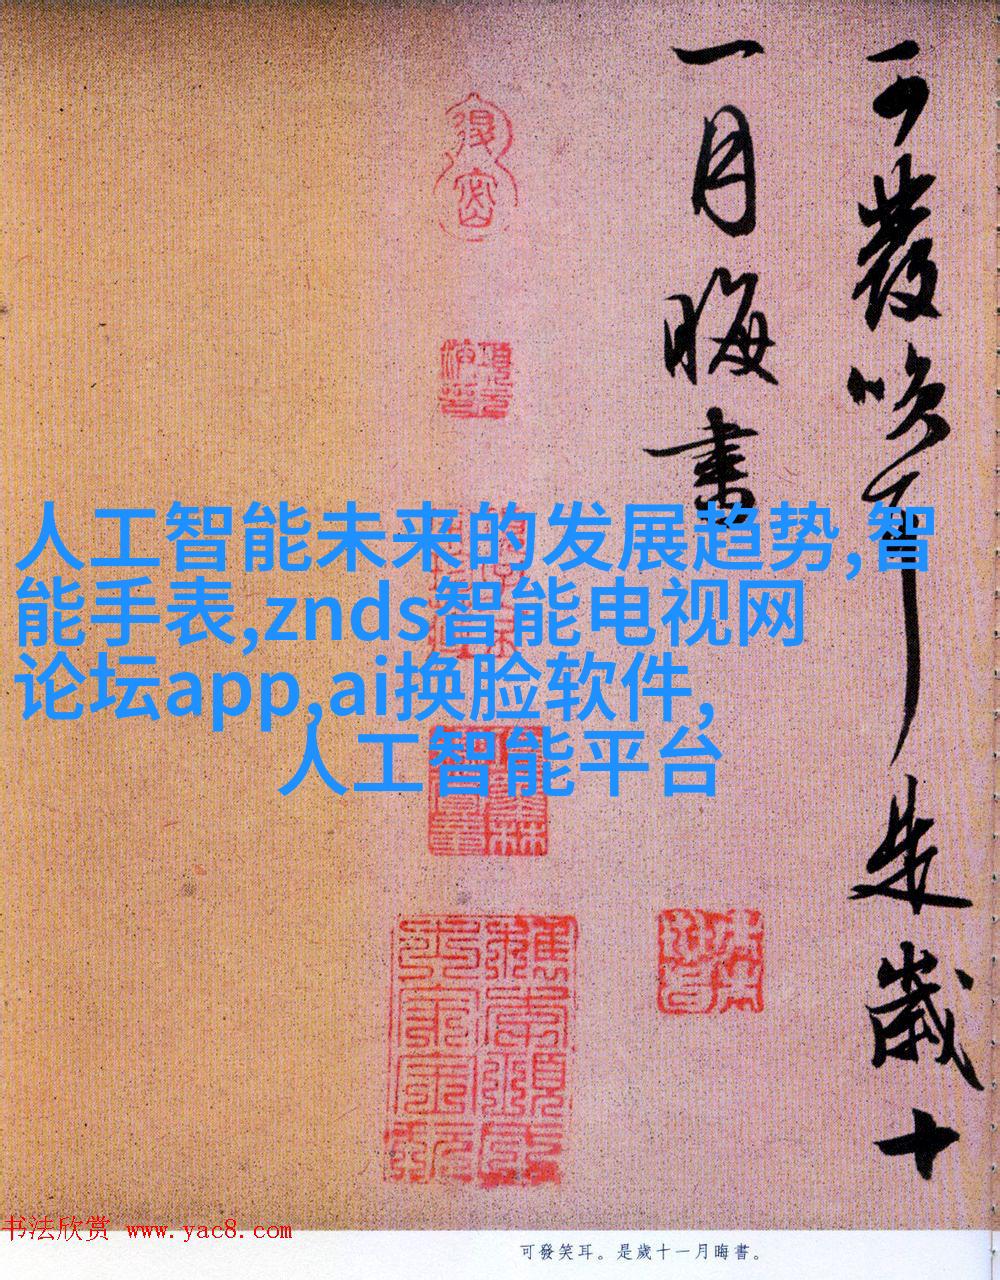 可發笑耳是歲十
一月晦書
人工智能未来的发展趋势,智
能手表,znds智能电视网
论坛app,ai换脸软件,
人工智能平台
书法欣赏 www.yac8.com
可發笑耳。是歲十一月晦書。